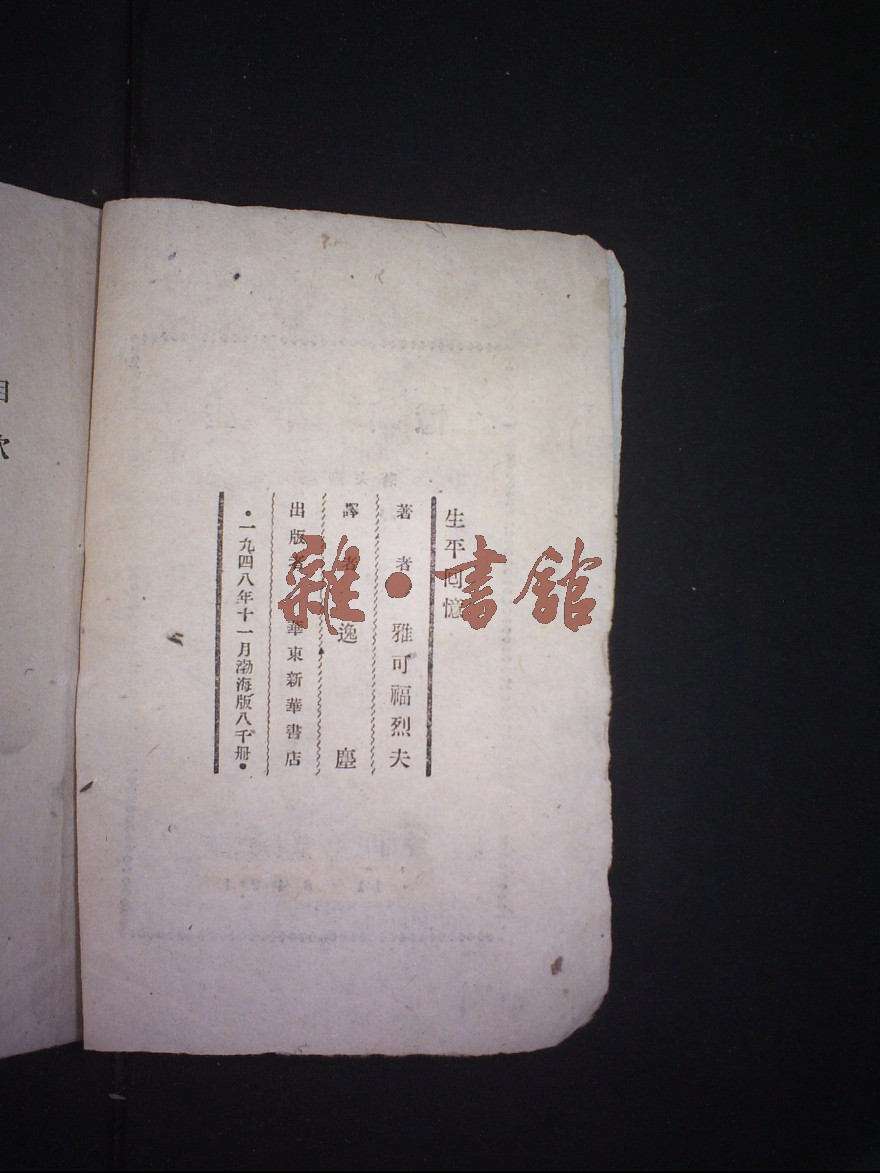 生平回憶
著者 雅可福烈夫
譯者 逸塵
出版者 華東新華書店
•一九四八年十一月渤海版八千冊•
雜•書館
目
次